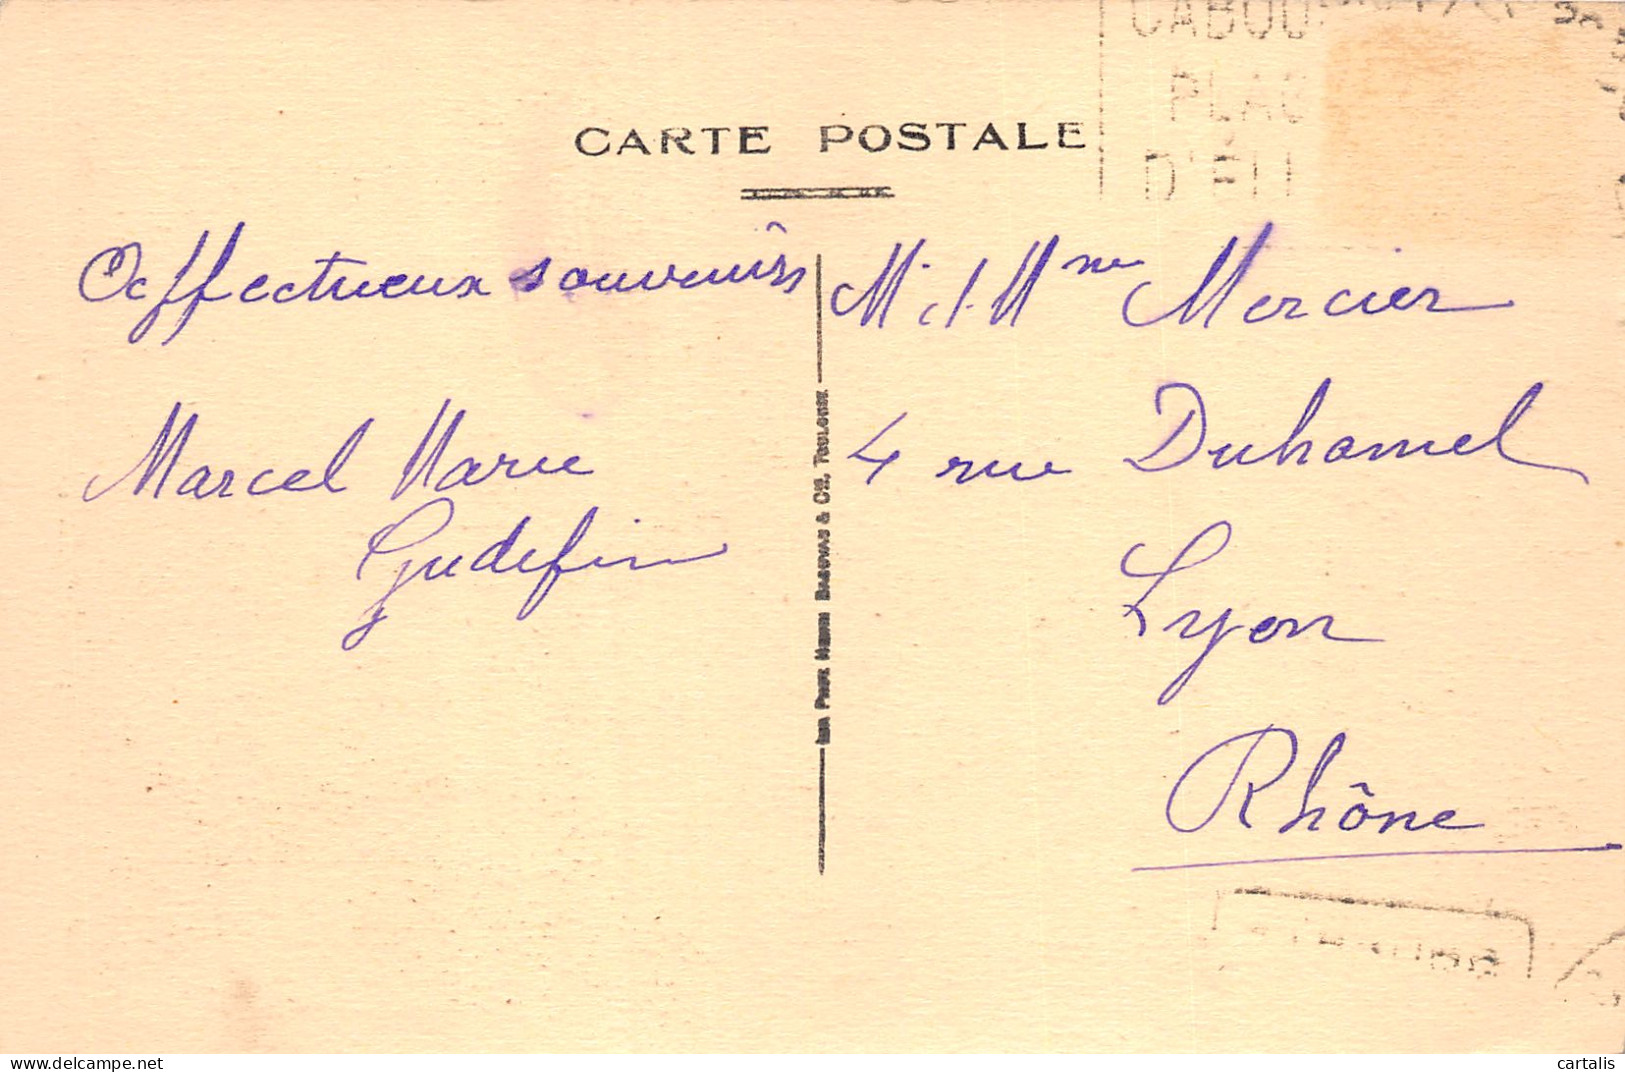 CARTE POSTALE
CABOU
PLAG
D'ÉLI
Affectueux souvenirs
Marcel Marie
Gudefin
M. et Mme Mercier
4 rue Duhamel
Lyon
Rhône
TOULOUSE
delcampe.net
cartalis